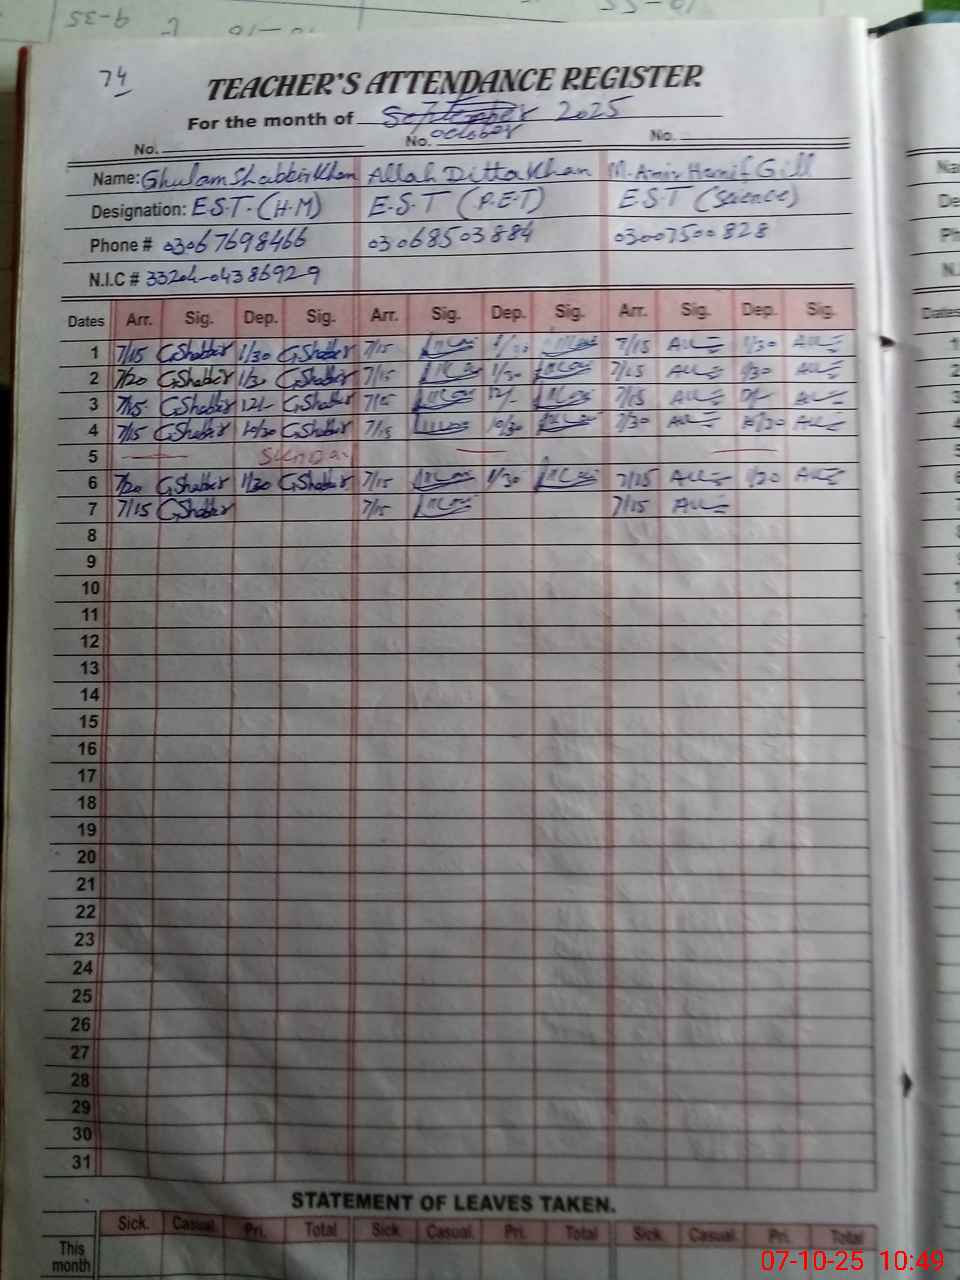 74
TEACHER'S ATTENDANCE REGISTER
For the month of September 2025
October
No. No. No.
Name: Ghulam Shabbir Khan Allah Ditta Khan M. Amir Hanif Gill
Designation: E.S.T-(H.M) E.S.T (P.E.T) E.S.T (Science)
Phone # 03067698466 03068503884 03007500828
N.I.C # 33204-0438692-9
Dates Arr. Sig. Dep. Sig. Arr. Sig. Dep. Sig. Arr. Sig. Dep. Sig.
1 7/15 G.Shabbir 1/30 G.Shabbir 7/15 7/15 1/30
2 7/20 G.Shabbir 1/30 G.Shabbir 7/15 1/30 7/15 1/30
3 7/15 G.Shabbir 12/- G.Shabbir 7/15 12/- 7/15
4 7/15 G.Shabbir 10/30 G.Shabbir 7/15 10/30 7/30 10/30
5 Sunday
6 7/20 G.Shabbir 1/30 G.Shabbir 7/15 1/30 7/15 1/30
7 7/15 G.Shabbir 7/15 7/15
8
9
10
11
12
13
14
15
16
17
18
19
20
21
22
23
24
25
26
27
28
29
30
31
STATEMENT OF LEAVES TAKEN.
Sick. Casual. Pri. Total Sick. Casual. Pri. Total Sick. Casual. Pri. Total
This
month
07-10-25 10:49